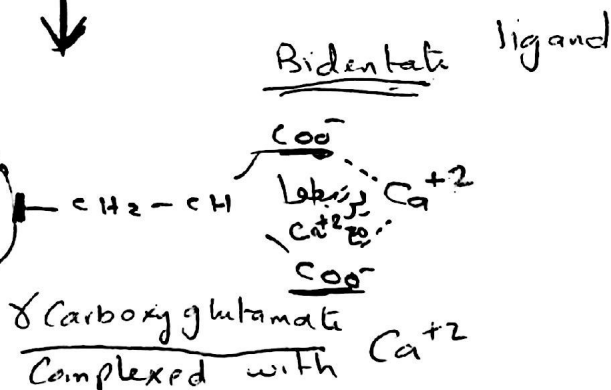 Bidentate ligand
COO⁻
CH₂ - CH يرتبطوا Ca⁺²
مع Ca⁺²
COO⁻
γ Carboxy glutamate
Complexed with Ca⁺²